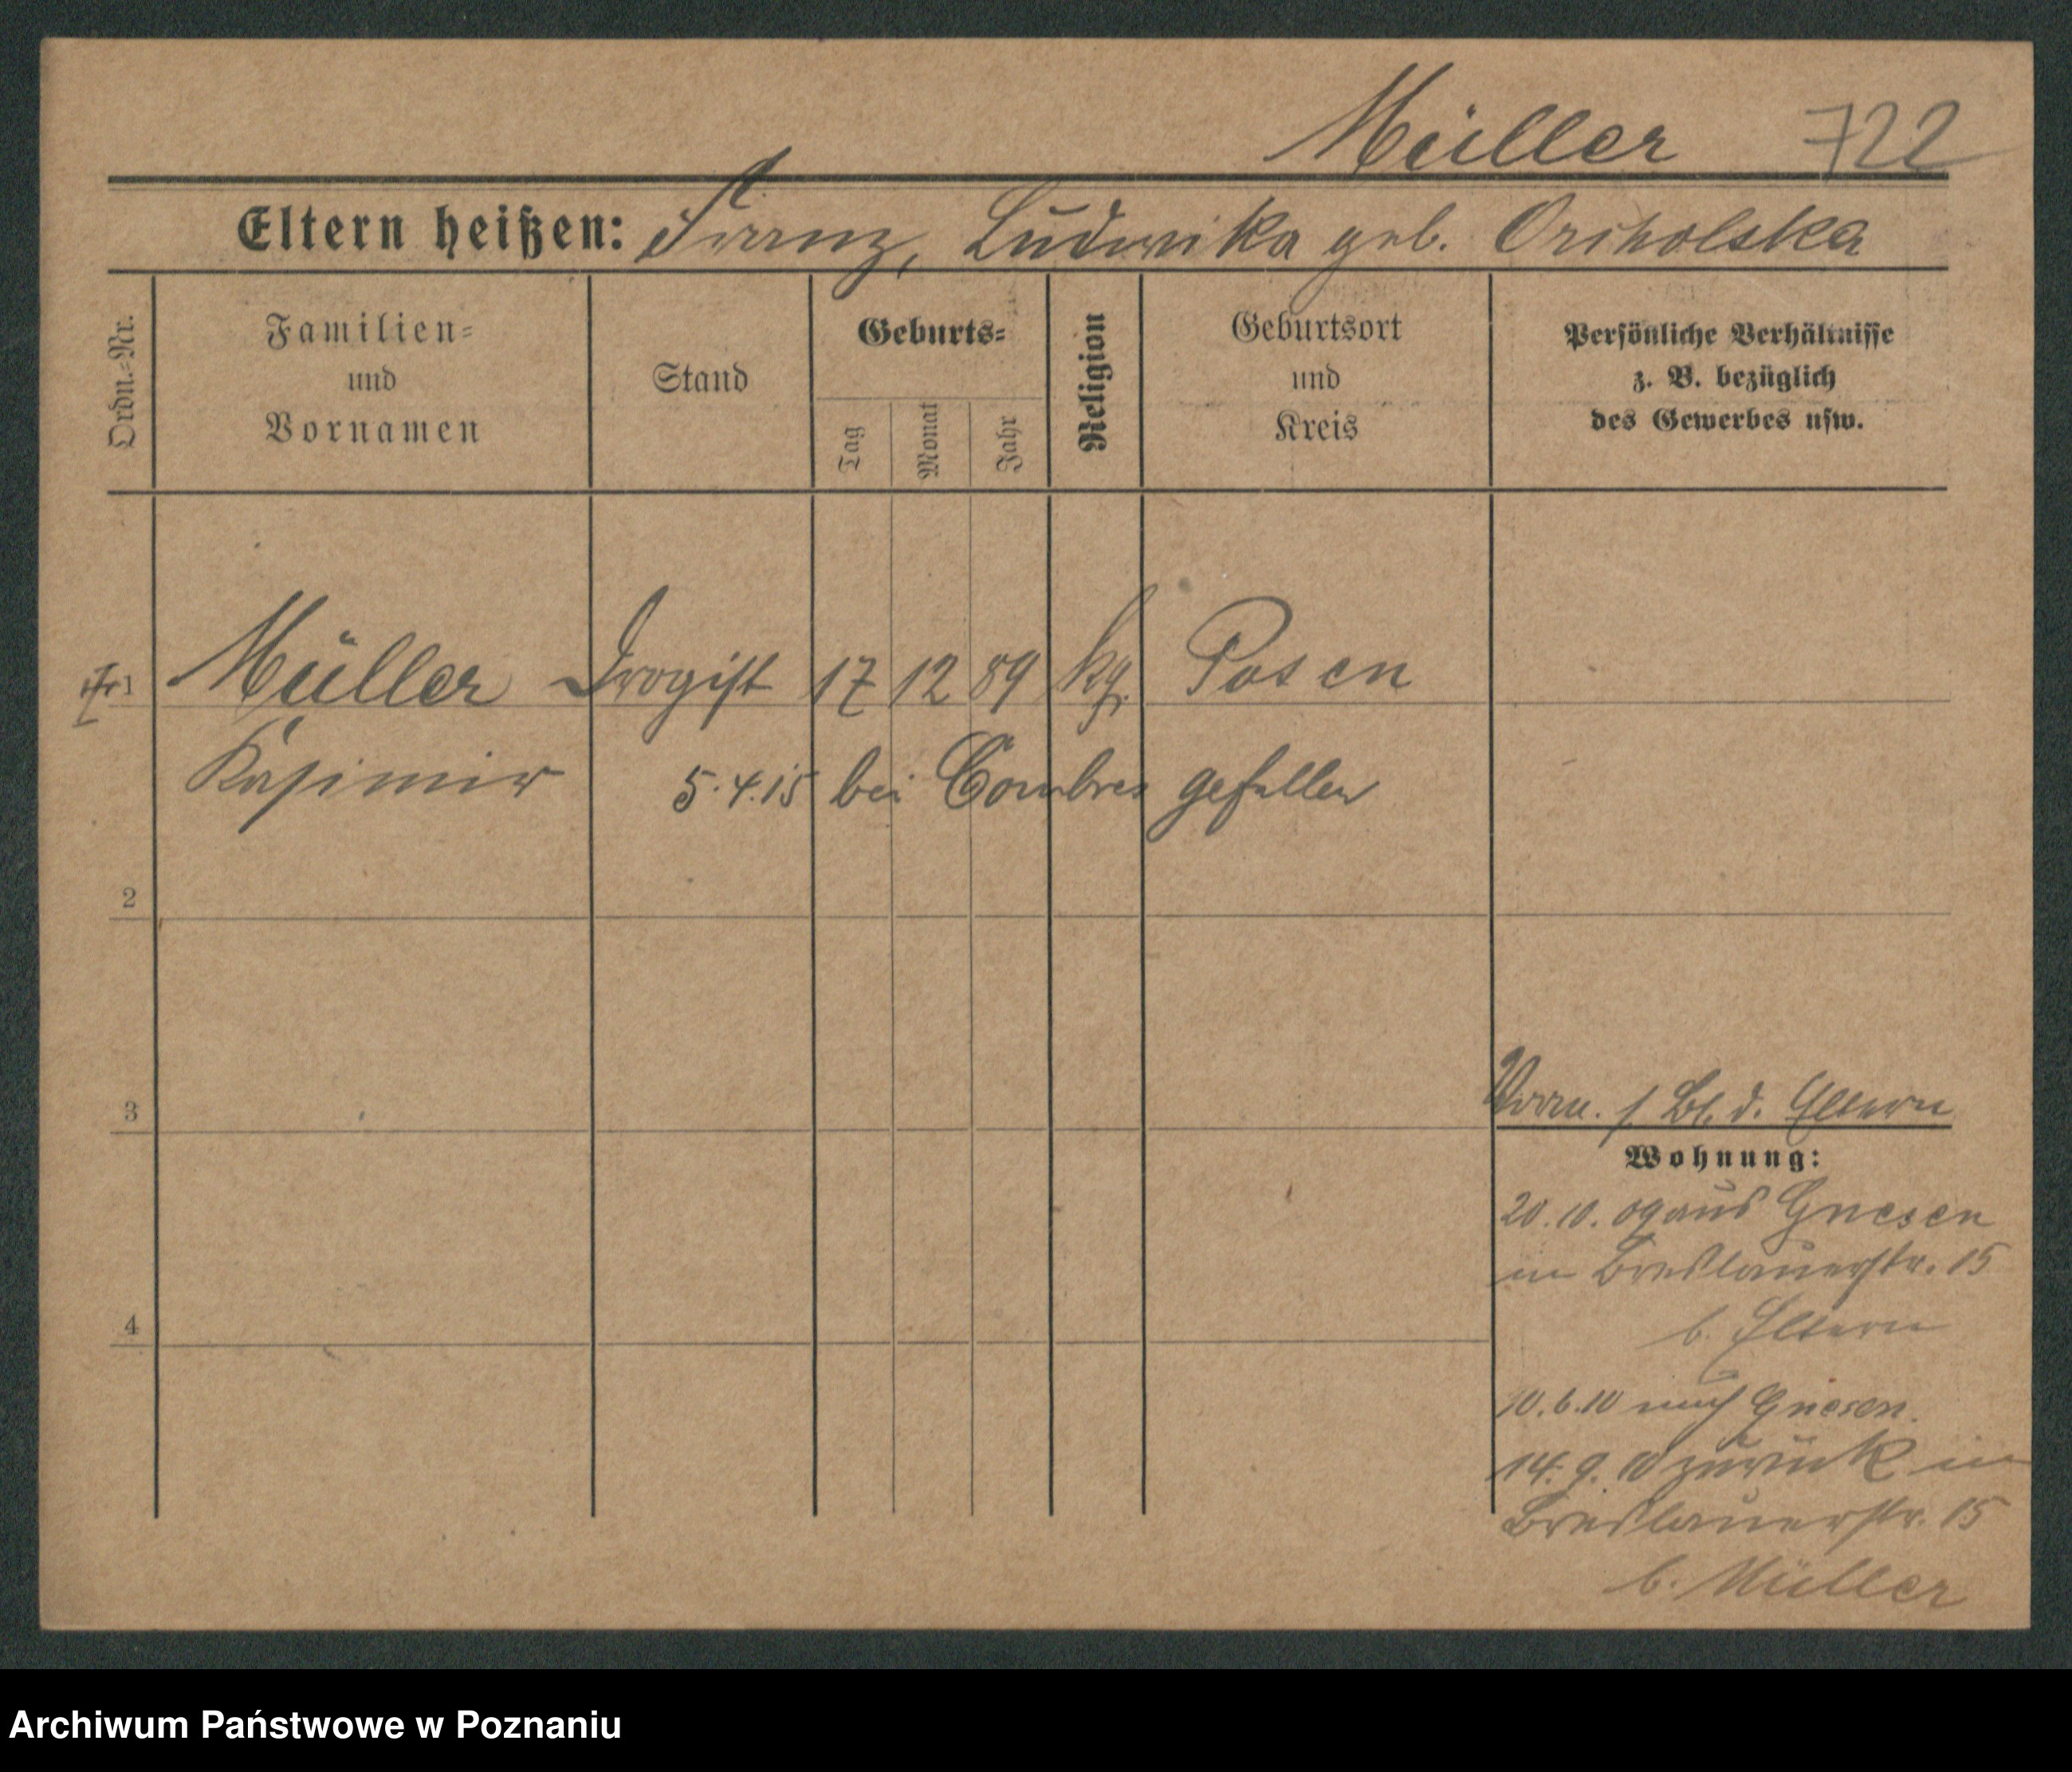 Müller 722
Eltern heißen: Franz, Ludwika geb. Orcholska
Ordn.-Nr.
Familien-
und
Vornamen
Stand
Geburts-
Tag
Monat
Jahr
Religion
Geburtsort
und
Kreis
Persönliche Verhältnisse
z. B. bezüglich
des Gewerbes usw.
1 Müller Drogist 17 12 89 kg. Posen
Kasimir 5.4.15 bei Combres gefallen
2
3
4
Vorm. s. Bl. d. Eltern
Wohnung:
20.10.09 aus Gnesen
in Breslauerstr. 15
b. Eltern
10.6.10 nach Gnesen.
14.9.10 zurück in
Breslauerstr. 15
b. Müller
Archiwum Państwowe w Poznaniu